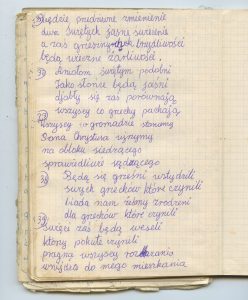 Będzie prędziwne zmienienie
dwa świętych jasne świecenie
a zaś grzesznych brzydliwości
będą wieczne żałości.
Aniołom świętym podobni
Jako słońce będą jaśni
djabły się zaś porównają
wszyscy co grzechy pachają
Wszyscy w gromadzie staniemy
Pana Chrystusa ujrzymy
na obłoku siedzącego
sprawiedliwie sądzącego
Będą się grześni wstydzili
swych grzechów które czynili
biada nam żeśmy zrodzeni
dla grzechów któré czynili
Święci zaś będą weseli
którzy pokutę czynili
pragną wszyscy rozkazania
wnijdźta do mego mieszkania